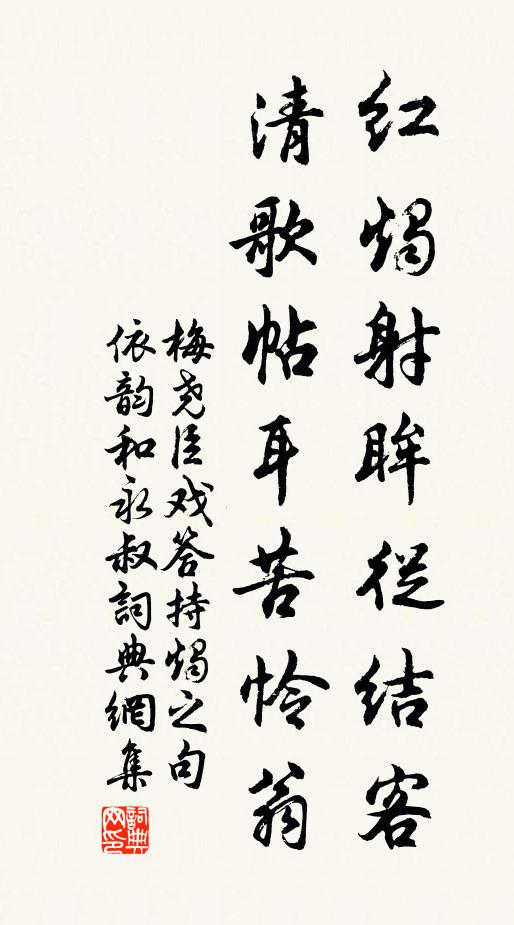 红烛射眸從结客
清歌帖耳苦怜翁
梅尧臣戏答持烛之句
依韵和永叔詞典網集
詞典网印